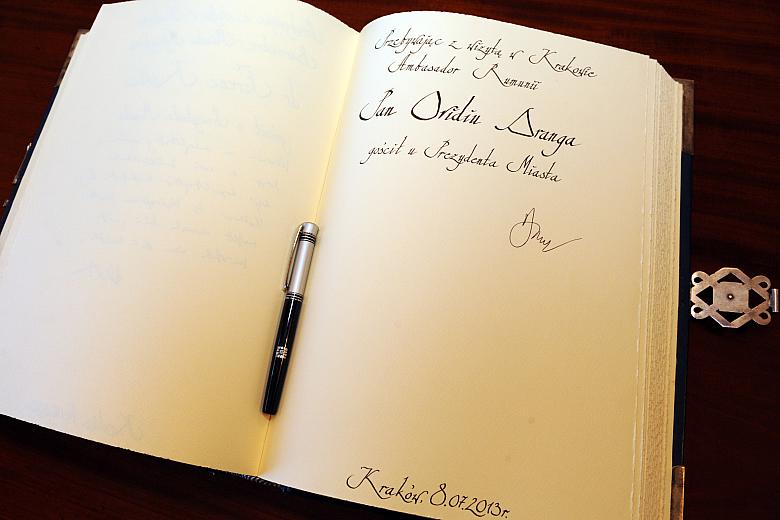 Przebywając z wizytą w Krakowie
Ambasador Rumunii
Pan Ovidiu Dranga
gościł u Prezydenta Miasta
Kraków, 8.07.2013r.